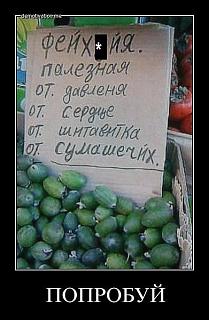 demotivator.me
ФЕЙХ*ЙЯ.
палезная
от. давленя
от. сердце
от. шитавитка
от. сумашечйх.
ПОПРОБУЙ